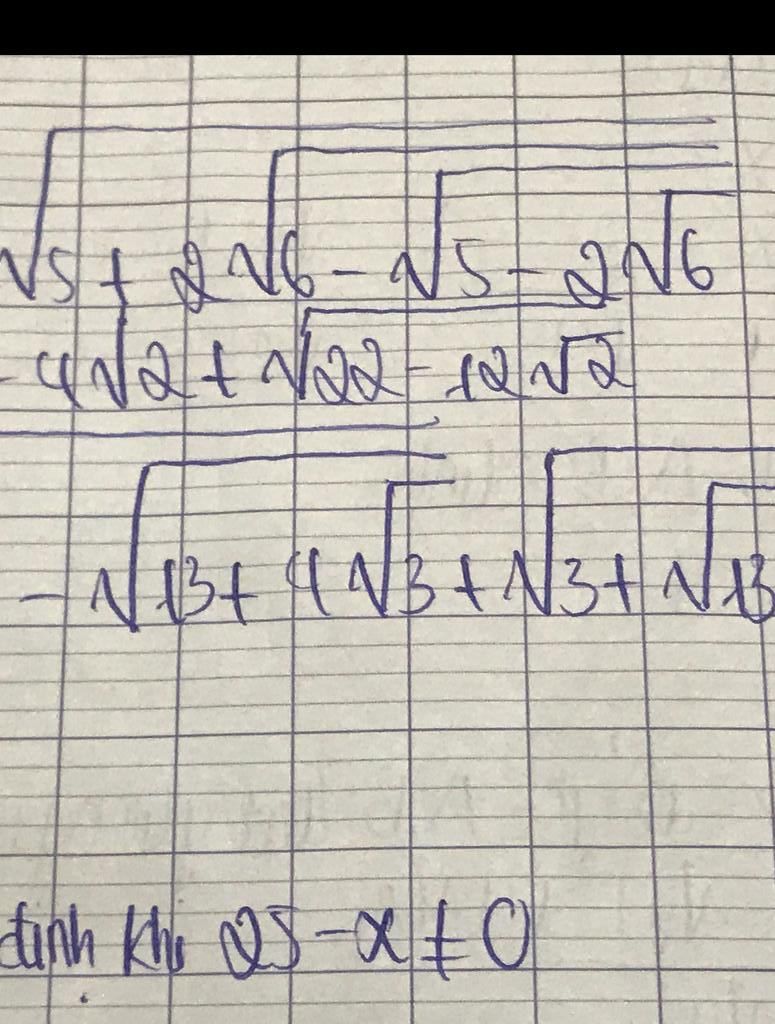 √5 + 2√6 - √5 - 2√6
- 4√2 + √22 - 12√2
- √13 + 4√3 + √3 + √13
định khi 25 - x ≠ 0